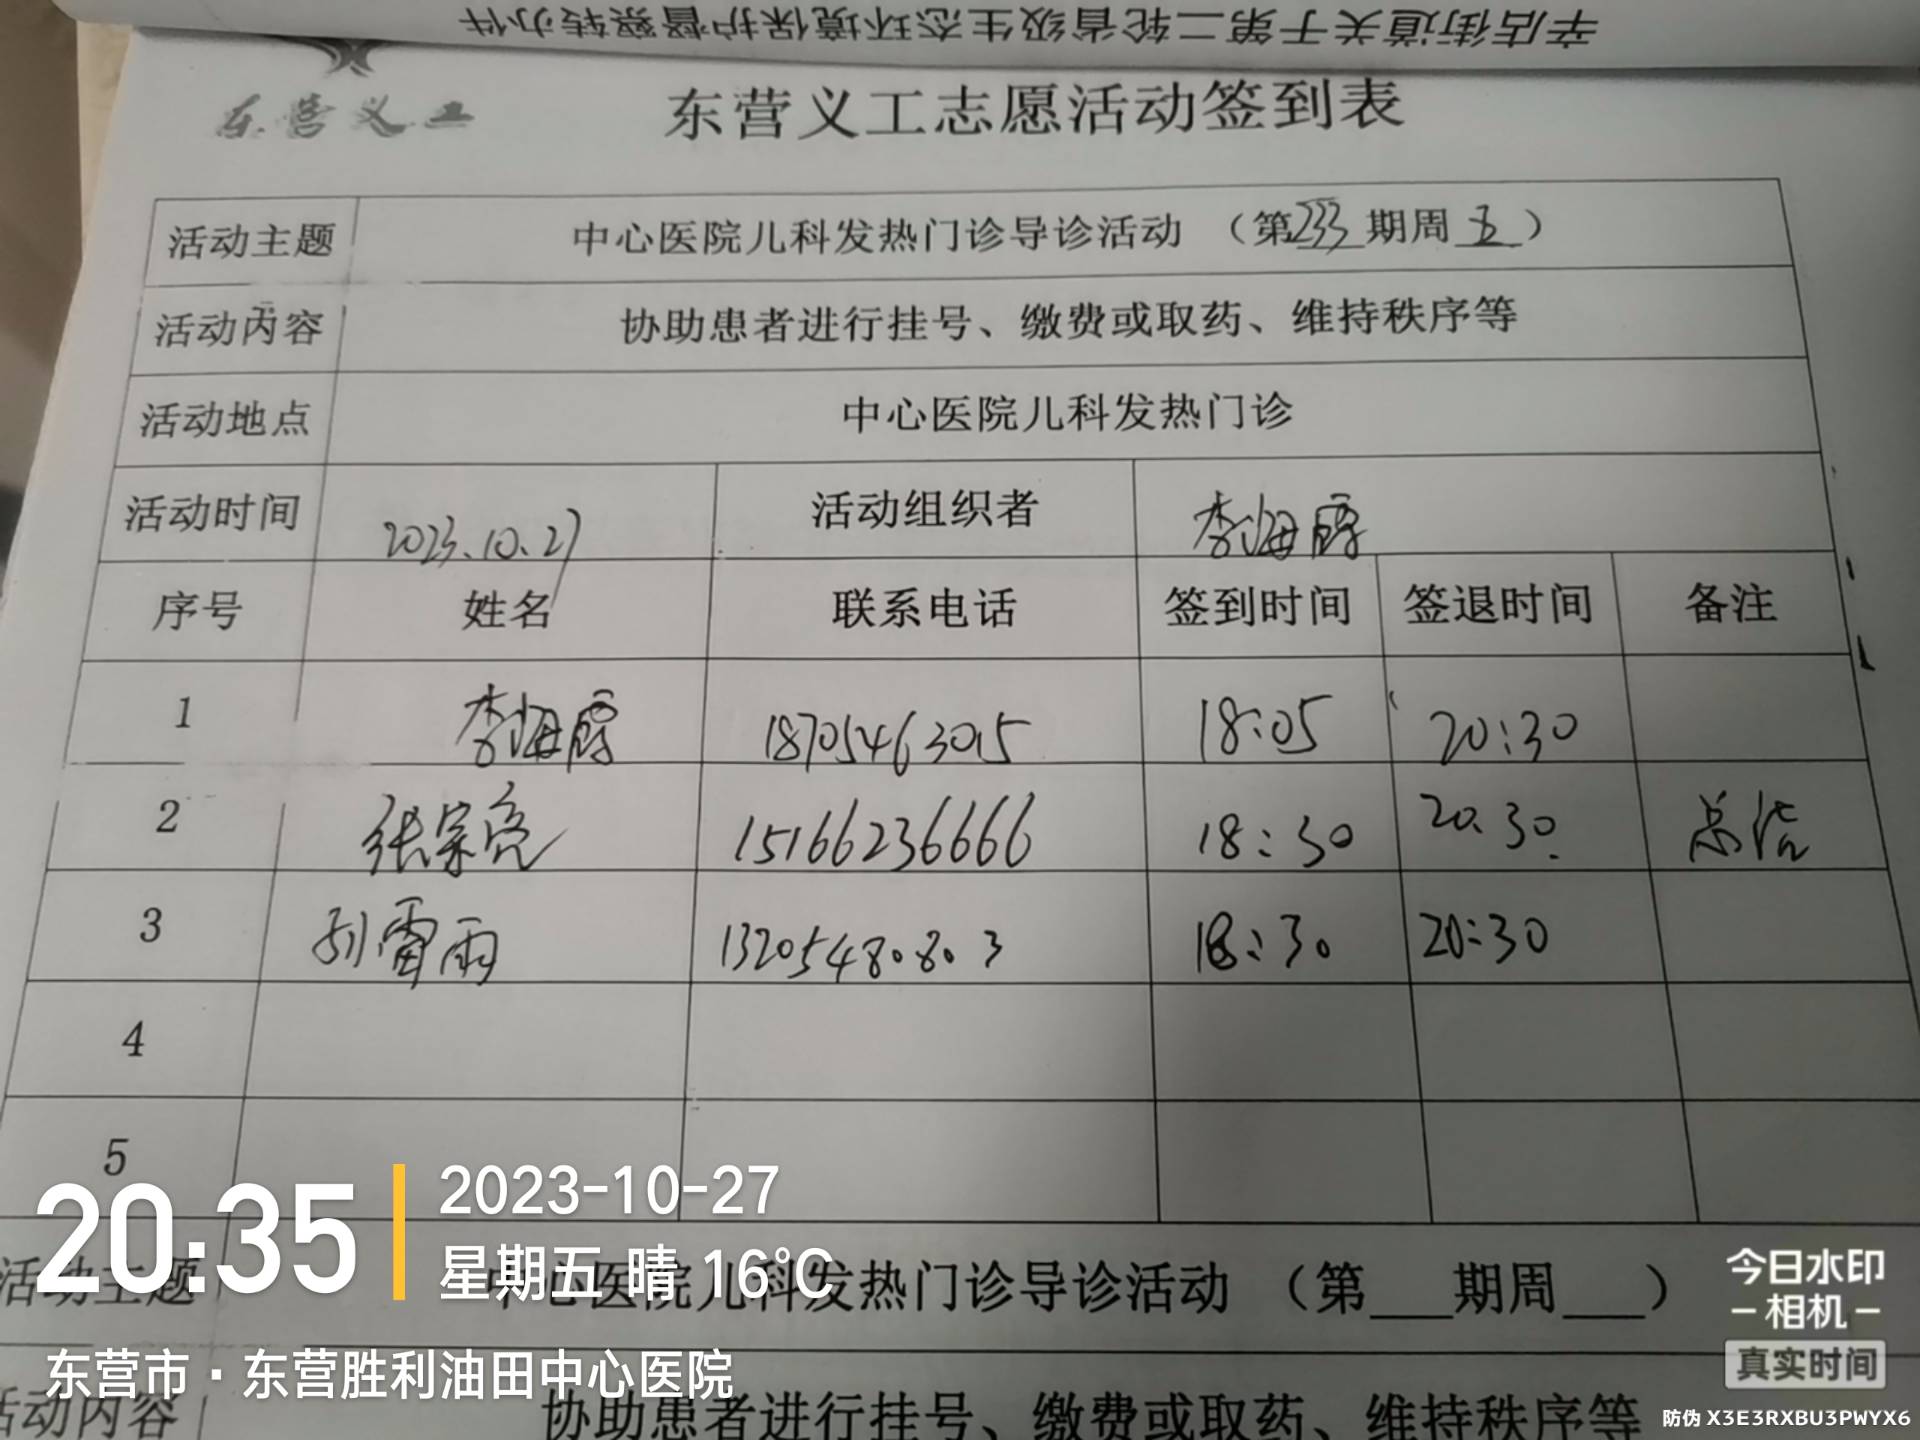 辛店街道关于第二轮省级生态环境保护督察转办件
东营义工
东营义工志愿活动签到表
活动主题 中心医院儿科发热门诊导诊活动 （第233期周五）
活动内容 协助患者进行挂号、缴费或取药、维持秩序等
活动地点 中心医院儿科发热门诊
活动时间 2023.10.27 活动组织者 李海霞
序号 姓名 联系电话 签到时间 签退时间 备注
1 李海霞 18705463015 18:05 20:30
2 张宗亮 15166236666 18:30 20.30. 总结
3 刘雷雨 13205480803 18:30 20:30
4
5
活动主题 中心医院儿科发热门诊导诊活动 （第___期周___）
活动内容 协助患者进行挂号、缴费或取药、维持秩序等
20:35
2023-10-27
星期五 晴 16°C
东营市·东营胜利油田中心医院
今日水印
相机
真实时间
防伪 X3E3RXBU3PWYX6